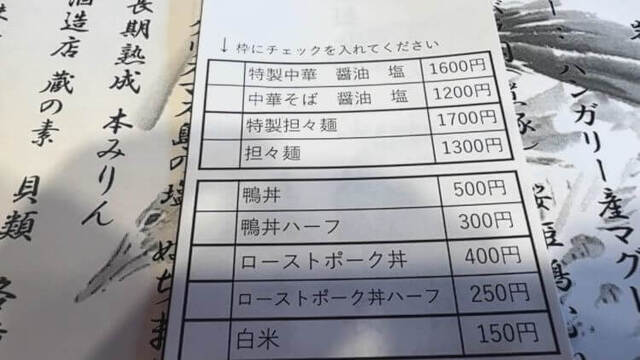 ↓ 枠にチェックを入れてください
特製中華 醤油 塩 1600円
中華そば 醤油 塩 1200円
特製担々麺 1700円
担々麺 1300円
鴨丼 500円
鴨丼ハーフ 300円
ローストポーク丼 400円
ローストポーク丼ハーフ 250円
白米 150円
ハンガリー産マグレ
長期熟成 本みりん
酒造店 蔵の素
貝類
島の塩 ぬちま